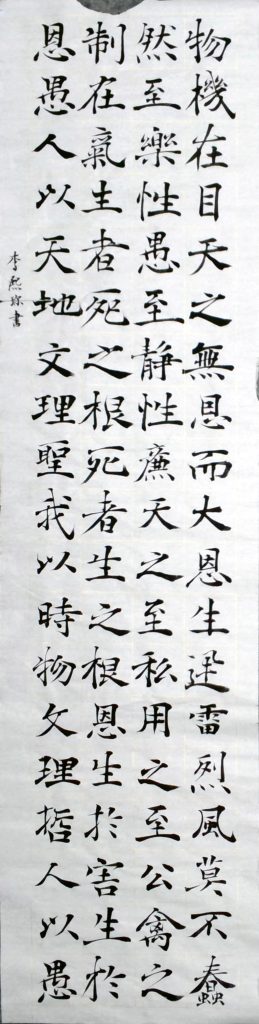 物機在目天之無恩而大恩生迅雷烈風莫不蠢
然至樂性愚至靜性廉天之至私用之至公禽之
制在氣生者死之根死者生之根恩生於害生於
恩愚人以天地文理聖我以時物文理哲人以愚
李熙書